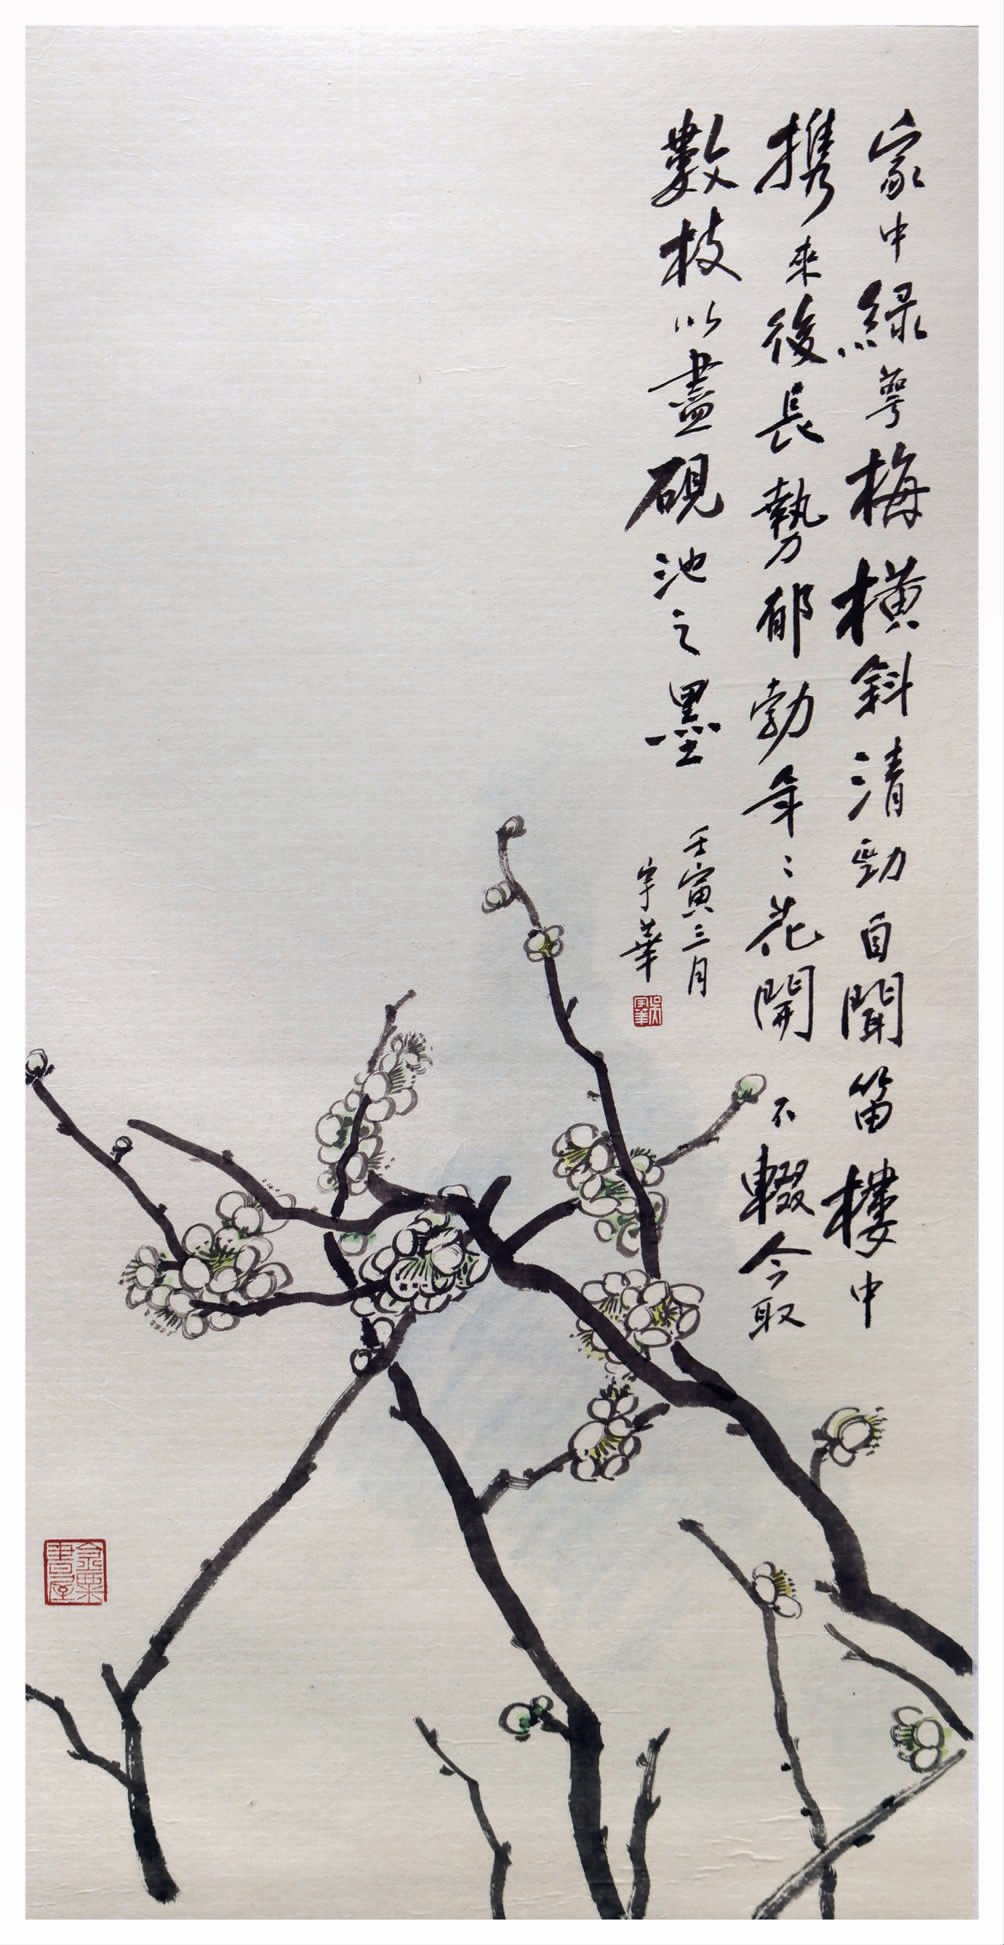 家中緑萼梅橫斜清勁自聞笛樓中
携來後長勢郁勃年〻花開不輟今取
數枝以盡硯池之墨
壬寅三月
宇華
金粟書屋